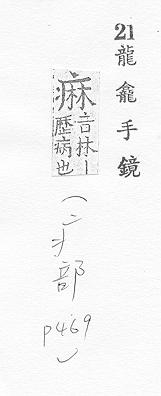 21 龍龕手鏡
痳
音林丨
歷病也
(疒部
p469)